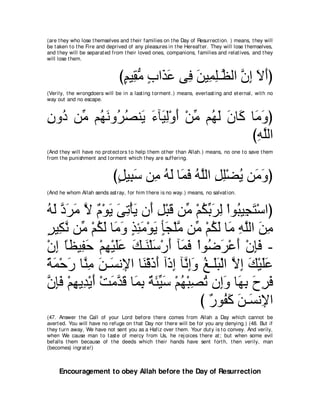 (are they who lose themselves and their families on the Day of Resurrection. ) means, they will
be taken to the Fire and deprived of any pleasures in the Hereafter. They will lose themselves,
and they will be separated from their loved ones, companions, families and relatives, and they
will lose them.
﴿أَلاَ إِنَّ الظَّـلِمِينَ فِى عَذَابٍ مُّقِيمٍ﴾
(Verily, the wrongdoers will be in a lasting torment.) means, everlasting and eternal, with no
way out and no escape.
﴿وَمَا كَانَ لَهُم مِّنْ أَوْلِيَآءَ يَنصُرُونَهُم مِّن دُونِ
اللَّهِ﴾
(And they will have no protectors to help them other than Allah.) means, no one to save them
from the punishment and torment which they are suffering.
﴿وَمَن يُضْلِلِ اللَّهُ فَمَا لَهُ مِن سَبِيلٍ﴾
(And he whom Allah sends astray, for him there is no way.) means, no salvation.
﴿اسْتَجِيبُواْ لِرَبِّكُمْ مِّن قَبْلِ أَن يَأْتِىَ يَوْمٌ لاَّ مَرَدَّ لَهُ
مِنَ اللَّهِ مَا لَكُمْ مِّن مَّلْجَأٍ يَوْمَئِذٍ وَمَا لَكُمْ مِّن نَّكِيرٍ
- فَإِنْ أَعْرَضُواْ فَمَآ أَرْسَلْنَـكَ عَلَيْهِمْ حَفِيظاً إِنْ
عَلَيْكَ إِلاَّ الْبَلَـغُ وَإِنَّآ إِذَآ أَذَقْنَا الإِنسَـنَ مِنَّا رَحْمَةً
فَرِحَ بِهَا وَإِن تُصِبْهُمْ سَيِّئَةٌ بِمَا قَدَّمَتْ أَيْدِيهِمْ فَإِنَّ
الإِنسَـنَ كَفُورٌ ﴾
(47. Answer the Call of your Lord before there comes from Allah a Day which cannot be
averted. You will have no refuge on that Day nor there will be for you any denying.) (48. But if
they turn away, We have not sent you as a Hafiz over them. Your duty is to convey. And verily,
when We cause man to taste of mercy from Us, he rejoices there at; but when some evil
befalls them because of the deeds which their hands have sent forth, then verily, man
(becomes) ingrate!)
Encouragement to obey Allah before the Day of Resurrection